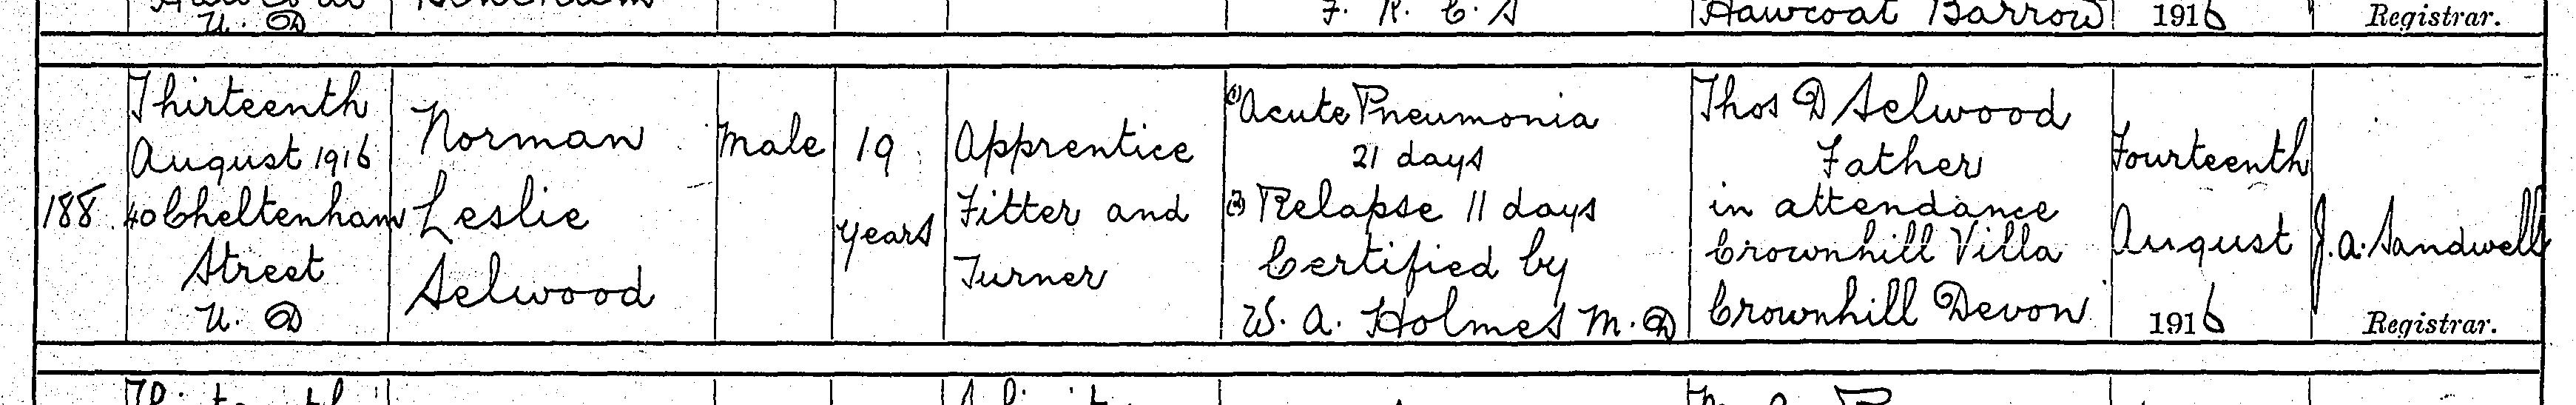 U. D
F. R. C. S
Hawcoat Barrow
1916
Registrar.
188
Thirteenth
August 1916
40 Cheltenham
Street
U. D
Norman
Leslie
Selwood
Male
19
years
Apprentice
Fitter and
Turner
(1) Acute Pneumonia
21 days
(2) Relapse 11 days
Certified by
W. A. Holmes M. D
Thos D Selwood
Father
in attendance
Crownhill Villa
Crownhill Devon
Fourteenth
August
1916
J. A. Sandwell
Registrar.